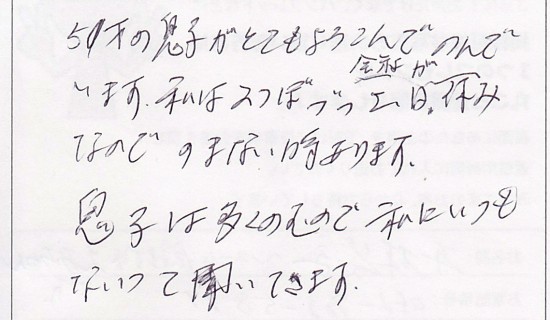 59才の息子がとてもよろこんでのんで
います.私は2つぼづつ土、日、休み
会社が
なので のまない時あります.
息子は多くのむので 私にいつも
ないって聞いてきます.